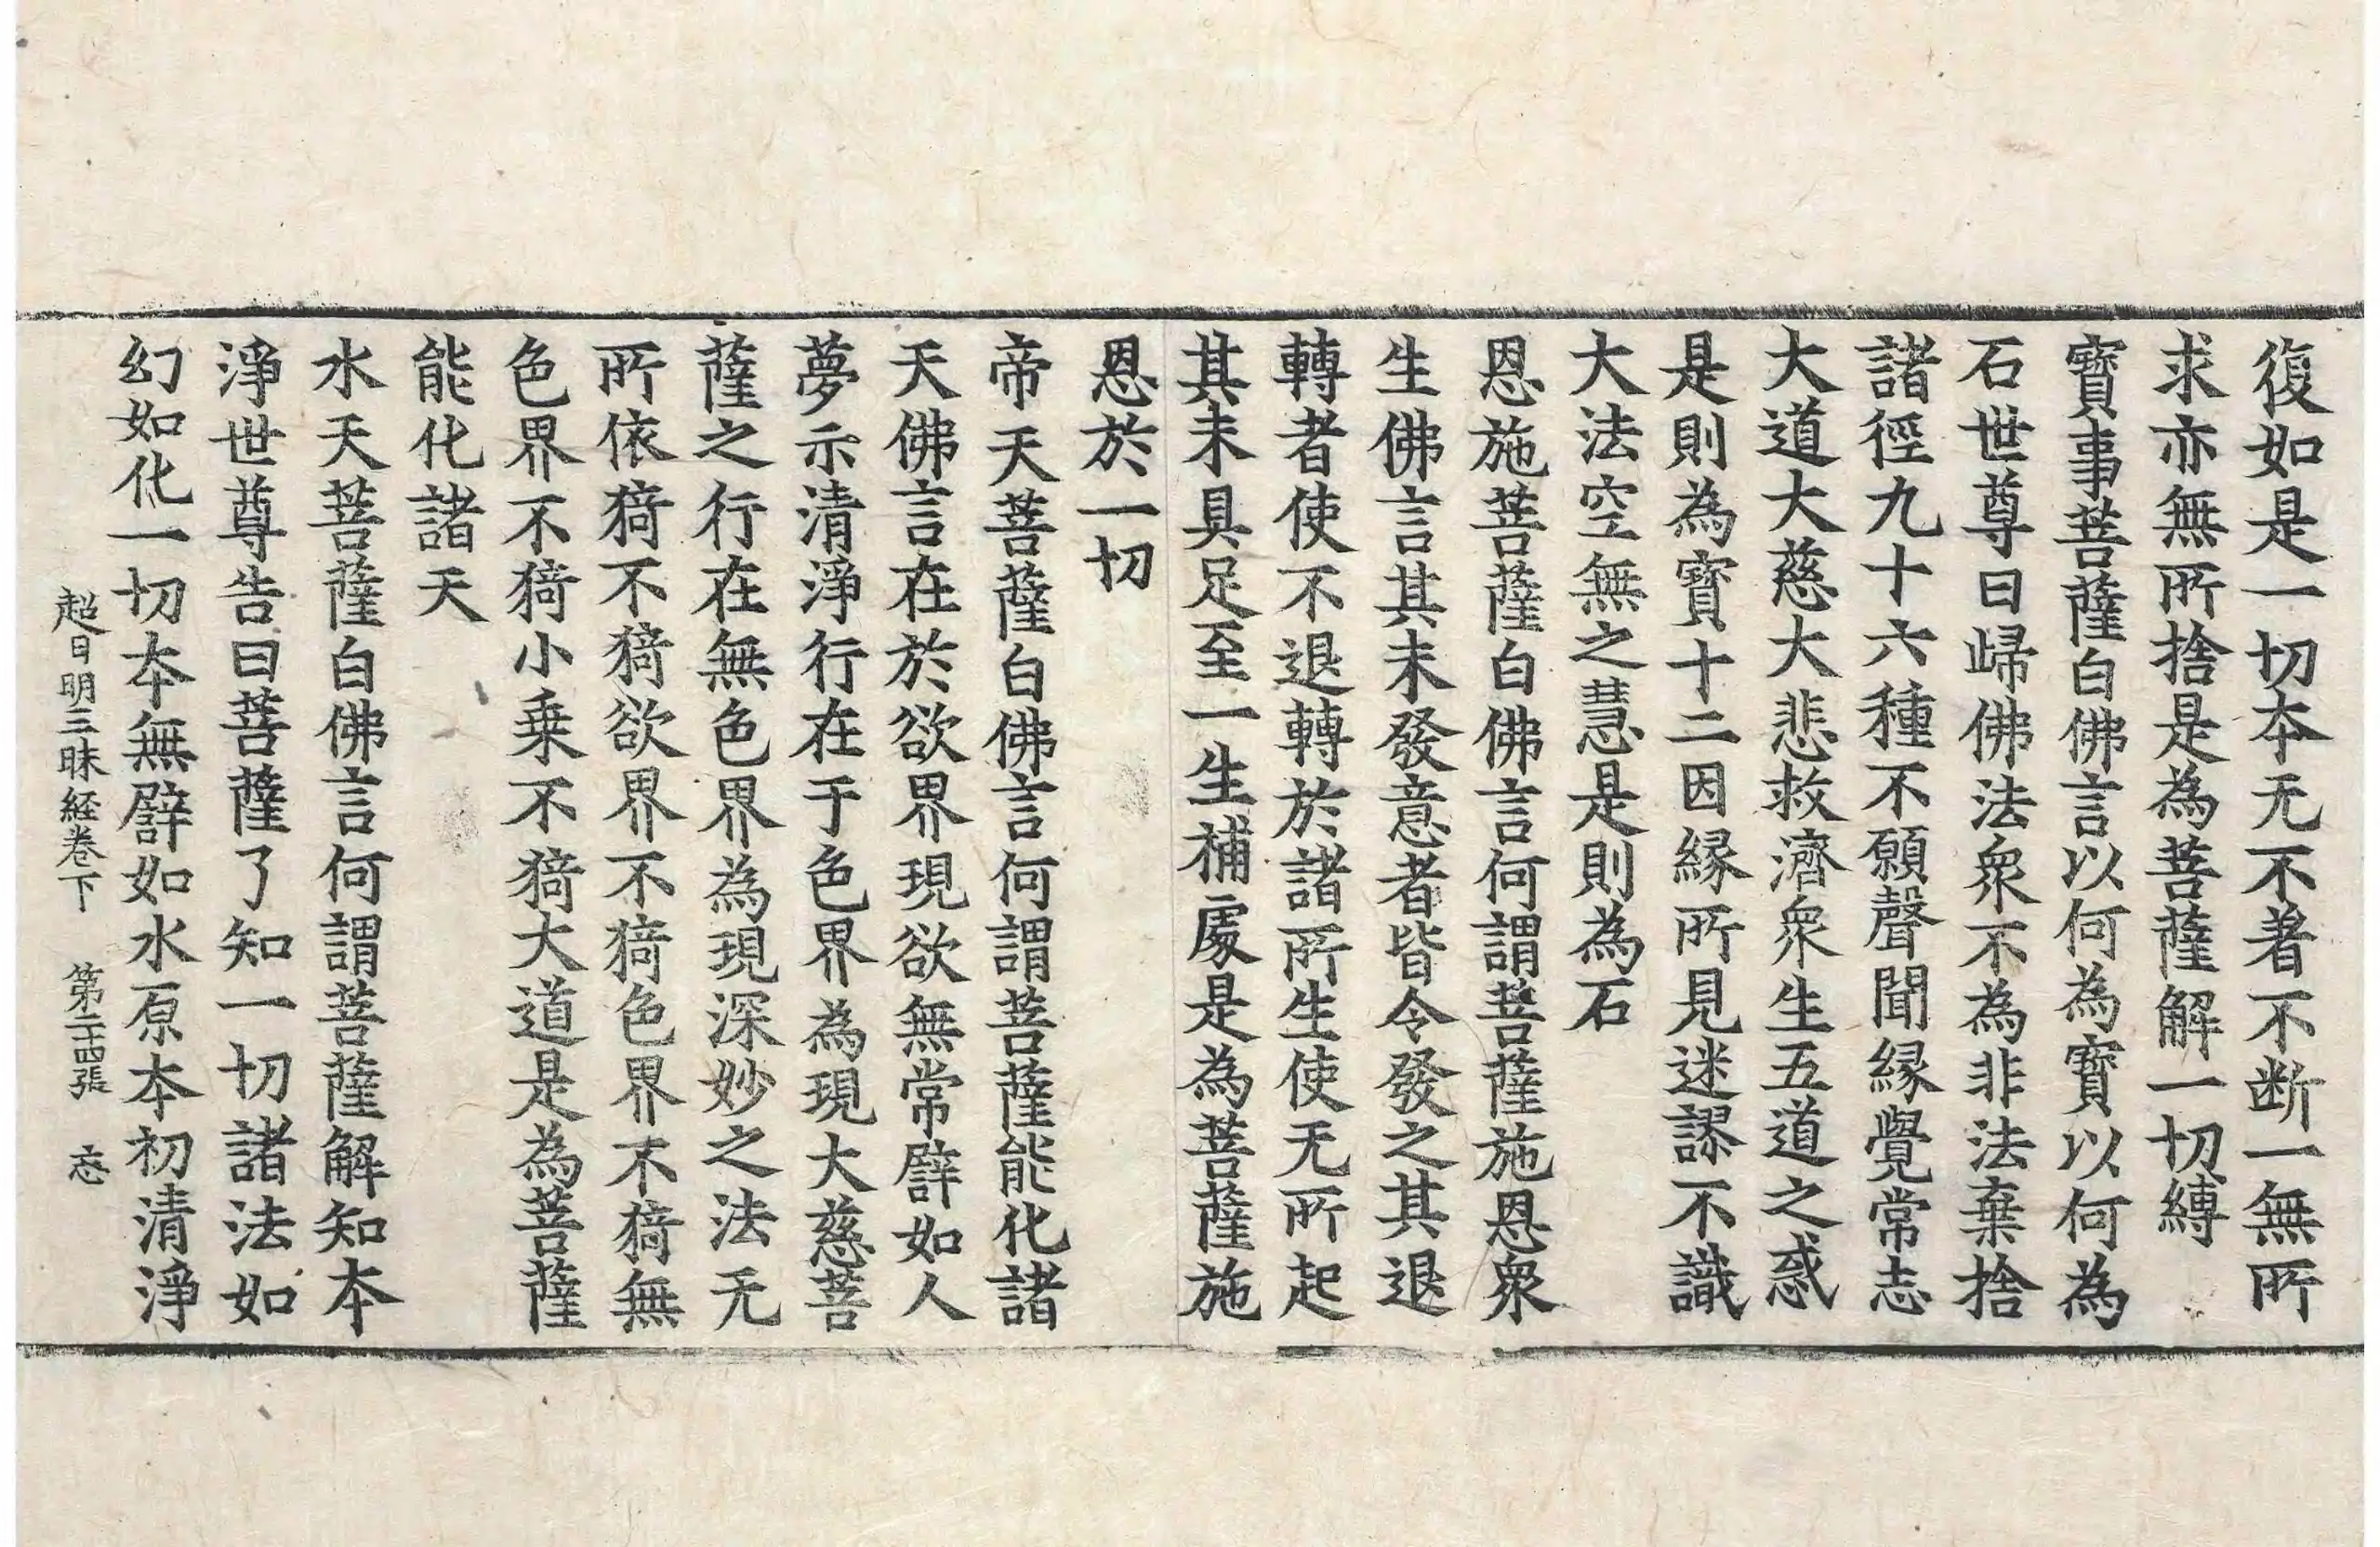 復如是一切本无不著不断一無所
求亦無所捨是為菩薩解一切縛
寳事菩薩白佛言以何為寳以何為
石世尊曰歸佛法衆不為非法棄捨
諸徑九十六種不願聲聞縁覺常志
大道大慈大悲救濟衆生五道之惑
是則為寳十二因縁所見迷謬不識
大法空無之慧是則為石
恩施菩薩白佛言何謂菩薩施恩衆
生佛言其未發意者皆令發之其退
轉者使不退轉於諸所生使无所起
其未具足至一生補處是為菩薩施
恩於一切
帝天菩薩白佛言何謂菩薩能化諸
天佛言在於欲界現欲無常譬如人
夢示清淨行在于色界為現大慈菩
薩之行在無色界為現深妙之法无
所依猗不猗欲界不猗色界不猗無
色界不猗小乗不猗大道是為菩薩
能化諸天
水天菩薩白佛言何謂菩薩解知本
淨世尊告曰菩薩了知一切諸法如
幻如化一切本無譬如水原本初清淨
超日明三昧経卷下 第二十四張